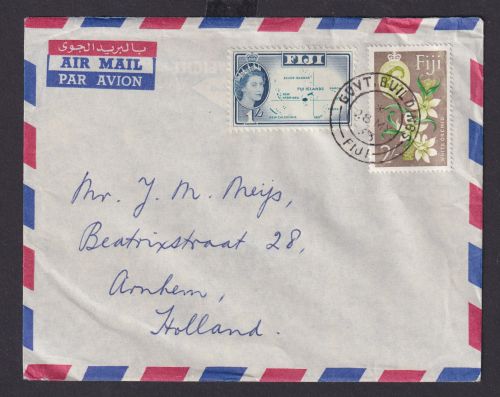 بالبريد الجوى
AIR MAIL
PAR AVION
FIJI
FIJI ISLANDS
NEW HEBRIDES
NEW CALEDONIA
1/-
Fiji
2/-
WHITE ORCHID
GOVT. BUILDINGS
28
FIJI
Mr. J. M. Meijs,
Beatrixstraat 28,
Arnhem,
Holland.